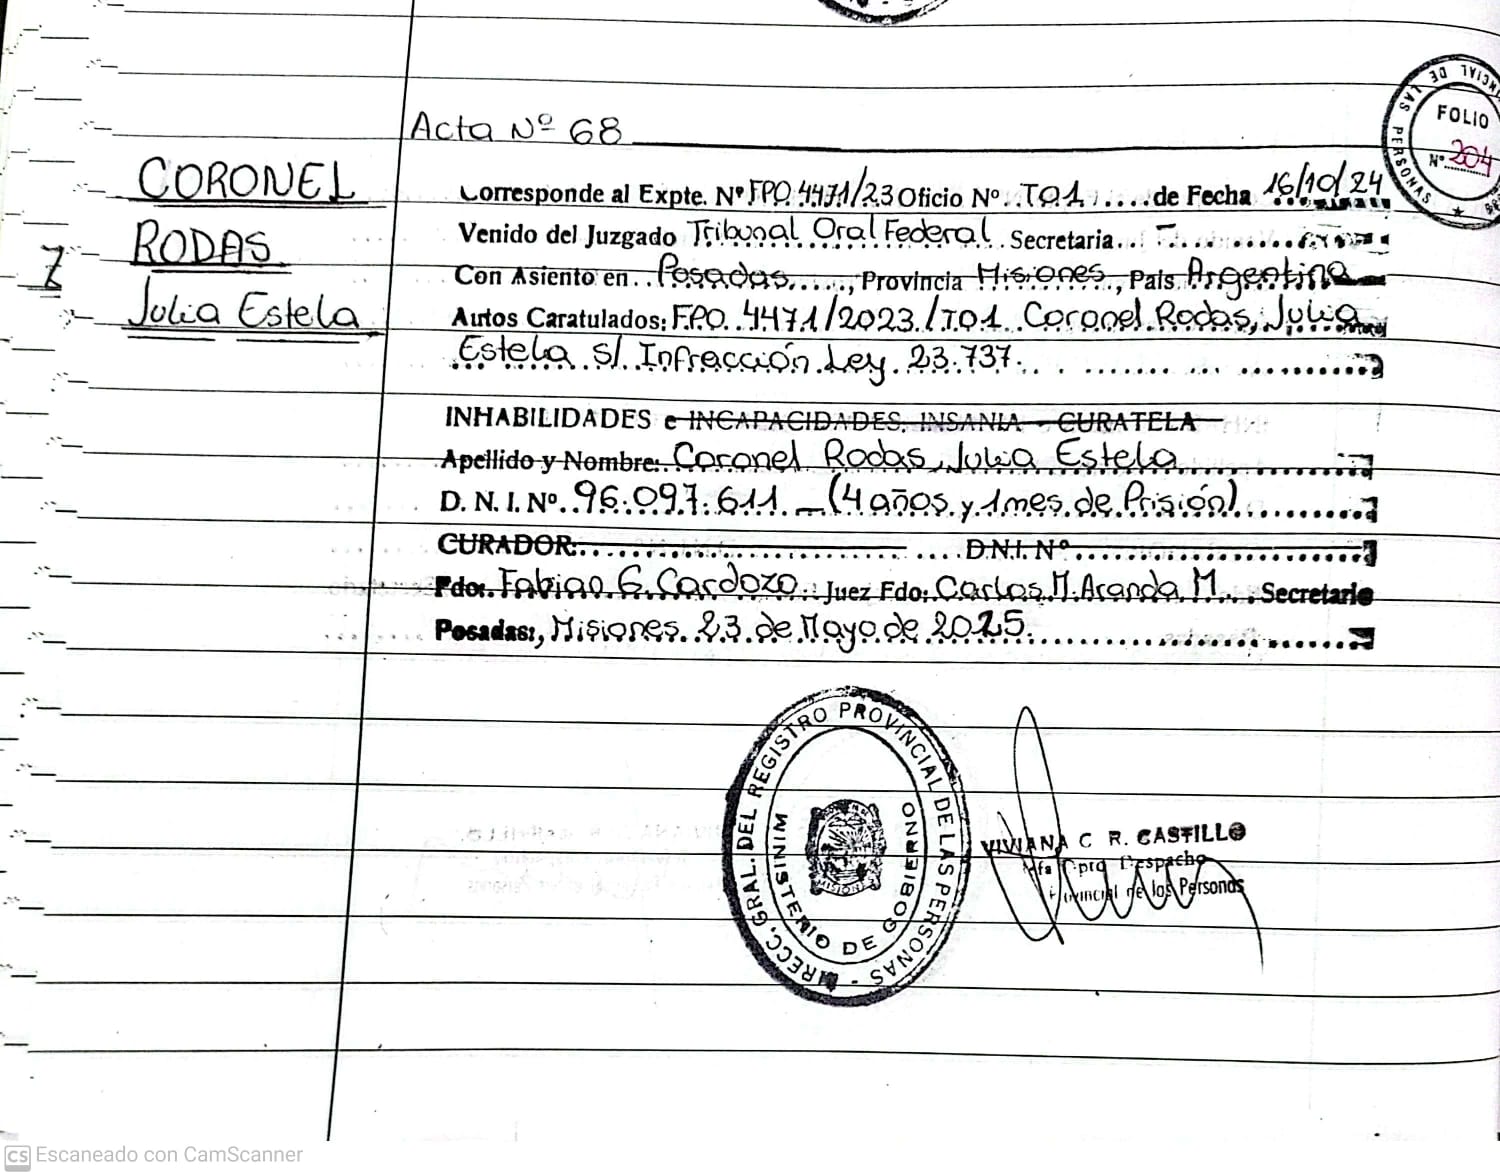 Acta Nº 68
CORONEL
RODAS
Julia Estela
FOLIO
Nº 204
DE LAS PERSONAS
Corresponde al Expte. Nº FPO 4471/23 Oficio Nº TO1 de Fecha 16/10/24
Venido del Juzgado Tribunal Oral Federal Secretaria
Con Asiento en Posadas, Provincia Misiones, País Argentina
Autos Caratulados: FPO 4471/2023/TO1 Coronel Rodas, Julia
Estela s/ Infracción Ley 23.737.
INHABILIDADES e INCAPACIDADES. INSANIA - CURATELA
Apellido y Nombre: Coronel Rodas, Julia Estela
D. N. I. Nº 96.097.611 - (4 años y 1 mes de Prisión)
CURADOR: D.N.I. Nº
Fdo: Fabian G. Cardozo Juez Fdo: Carlos M. Aranda M. Secretario
Posadas:, Misiones 23 de Mayo de 2025.
DIRECC. GRAL. DEL REGISTRO PROVINCIAL DE LAS PERSONAS
MINISTERIO DE GOBIERNO
MISIONES
VIVIANA C R. CASTILLO
Despacho
Provincial de las Personas
CS Escaneado con CamScanner